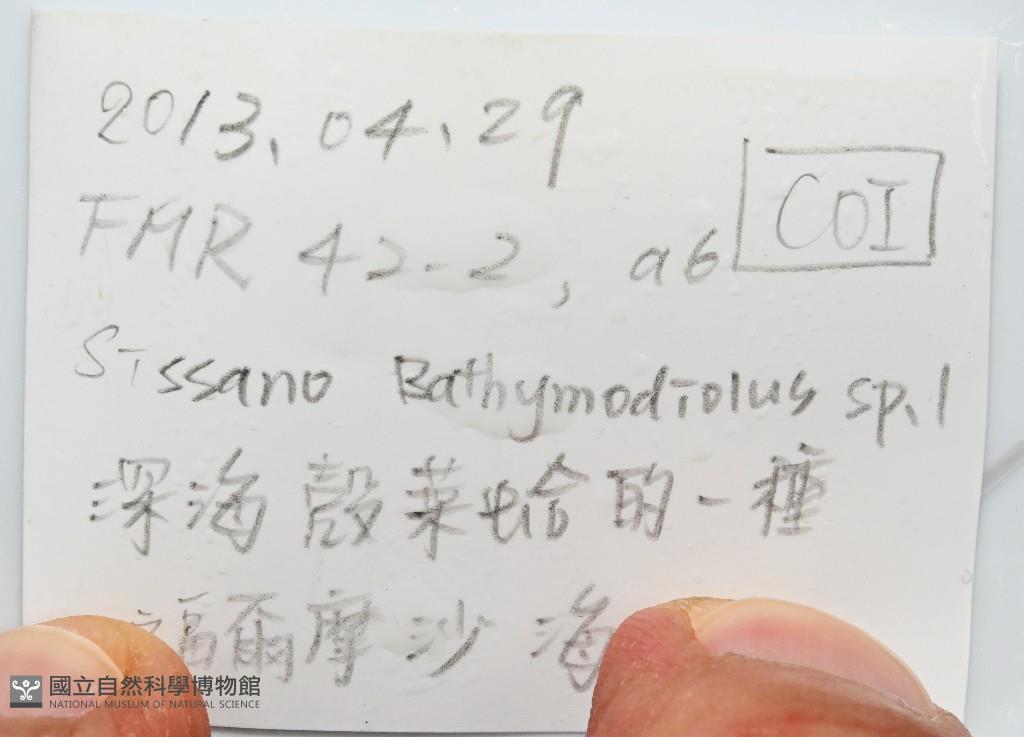 2013.04.29
FMR 42-2, a6 COI
Sissano Bathymodiolus sp.1
深海殼菜蛤的一種
福爾摩沙海
國立自然科學博物館
NATIONAL MUSEUM OF NATURAL SCIENCE